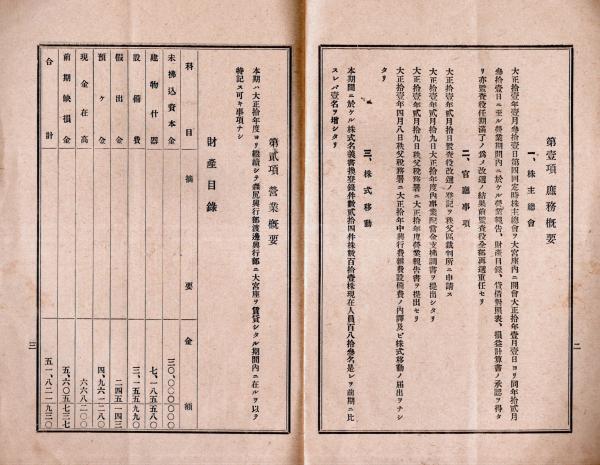 第壹項 庶務概要
一、株主總會
大正拾壹年壹月參拾壹日第四回定時株主總會ヲ大宮座内ニ開會大正拾年壹月壹日ヨリ同年拾貳月
參拾壹日ニ至ル營業期間内ニ於ケル營業報告、財產目録、貸借對照表、損益計算書ノ承認ヲ得タ
リ亦監査役任期滿了ノ爲メ改選ノ結果前監査役全部再選重任セリ
二、官廳事項
大正拾壹年貳月拾日監査役改選ノ登記ヲ秩父區裁判所ニ申請ス
大正拾壹年貳月拾九日大正拾年度内事業配當金支拂調書ヲ提出シタリ
大正拾壹年貳月拾九日秩父税務署ニ大正拾年度營業報告書ヲ提出セリ
大正拾壹年四月八日秩父税務署ニ大正拾年中興行費雜費設備費ノ内譯及ビ株式移動ノ届出ヲナシ
タリ
三、株式移動
本期間ニ於ケル株式名義書換登錄件數貳拾四件株數百拾壹株現在人員百八拾參名ニシテ是レヲ前期ニ比
スレバ壹名ヲ增シタリ
二
第貳項 營業概要
本期ハ大正拾年度ヨリ繼續シテ森尻興行部渡邊興行部ニ大宮座ヲ賃貸シタル期間内ニ在ルヲ以テ
特記ス可キ事項ナシ
財產目錄
科目 摘要 金額
未拂込資本金 三〇、〇〇〇〇〇〇
建物什器 七、一八五五八〇
設備費 三、一五五九九〇
假出金 二四五一四三
預ヶ金 四、九六一二八〇
現金在高 六六八二〇〇
前期缺損金 五、六〇五七三七
合計 五一、八二一九三〇
三